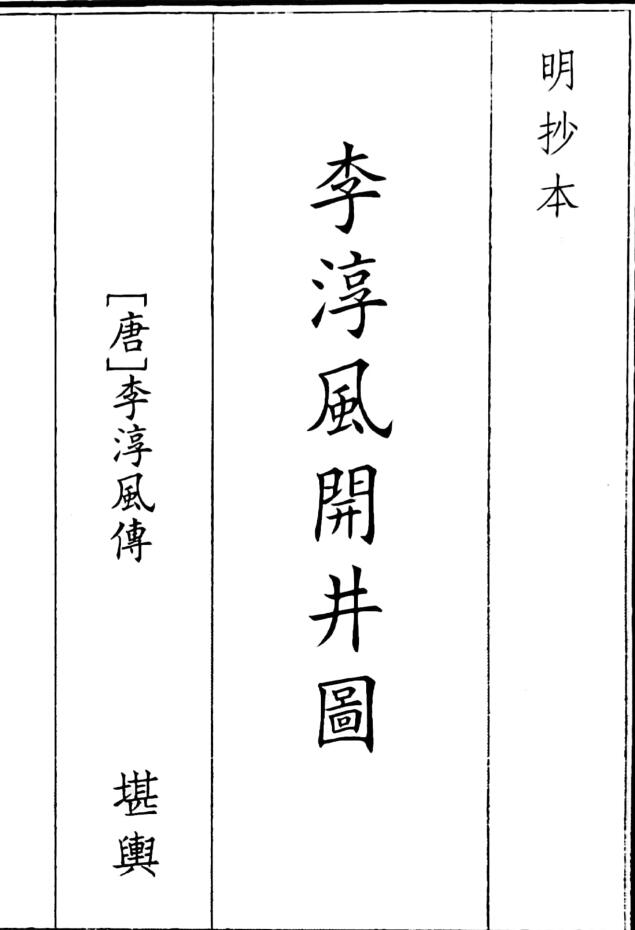 明抄本
李淳風開井圖
[唐]李淳風傳
堪輿